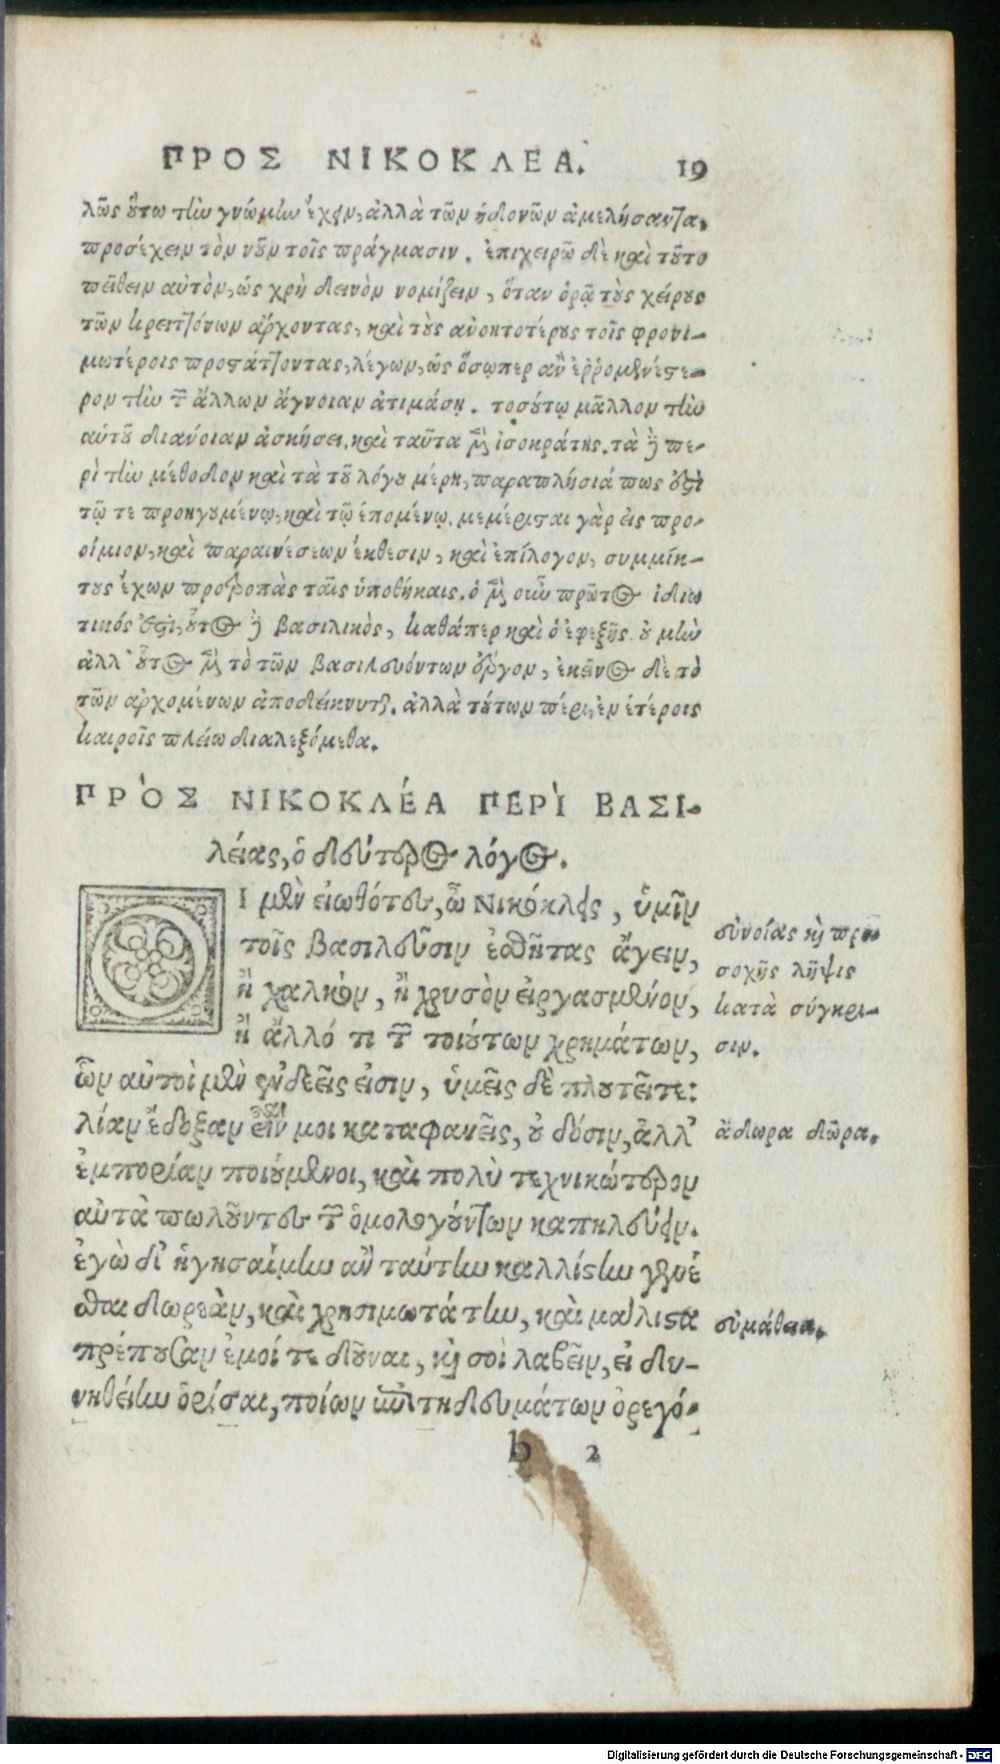 ΠΡΟΣ ΝΙΚΟΚΛΕΑ. 19
λῶς ὅτω τὴν γνώμην ἔχειν, ἀλλὰ τῶν ἡδονῶν ἀμελήσαντα,
προσέχειν τὸν νοῦν τοῖς πράγμασιν. ἐπιχειρῶ δὲ καὶ τοῦτο
πείθειν αὐτὸν, ὡς χρὴ δεινὸν νομίζειν, ὅταν ὁρᾷ τοὺς χείρους
τῶν κρειττόνων ἄρχοντας, καὶ τοὺς ἀνοητοτέρους τοῖς φρονι-
μωτέροις προστάττοντας, λέγων, ὡς ὅσῳπερ ἂν ἐῤῥωμενέστε-
ρον τὴν τῶν ἄλλων ἄγνοιαν ἀτιμάσῃ. τοσούτῳ μᾶλλον τὴν
αὑτοῦ διάνοιαν ἀσκήσει. καὶ ταῦτα μὲν ἰσοκράτης. τὰ δὲ πε-
ρὶ τὴν μέθοδον καὶ τὰ τοῦ λόγου μέρη, παραπλήσιά πως ἐστὶ
τῷ τε προηγουμένῳ, καὶ τῷ ἑπομένῳ. μεμέρισται γὰρ εἰς προ-
οίμιον, καὶ παραινέσεων ἔκθεσιν, καὶ ἐπίλογον, συμμίκ-
τους ἔχων προτροπὰς ταῖς ὑποθήκαις. ὁ μὲν οὖν πρῶτος ἰδιω
τικός ἐστι, οὗτος δὲ βασιλικὸς, καθάπερ καὶ ὁ ἐφεξῆς. οὐ μὴν
ἀλλ' οὗτος μὲν τὸ τῶν βασιλευόντων ἔργον, ἐκεῖνος δὲ τὸ
τῶν ἀρχομένων ἀποδείκνυται. ἀλλὰ τούτων πέρι, ἐν ἑτέροις
καιροῖς πλείω διαλεξόμεθα.
ΠΡῸΣ ΝΙΚΟΚΛΈΑ ΠΕΡῚ ΒΑΣΙ-
λείας, ὁ δεύτερος λόγος.
ΟΙ μὲν εἰωθότες, ὦ Νικόκλεις, ὑμῖν
τοῖς βασιλεῦσιν ἐσθῆτας ἄγειν,
ἢ χαλκὸν, ἢ χρυσὸν εἰργασμένον,
ἢ ἄλλό τι τῶν τοιούτων χρημάτων,
ὧν αὐτοὶ μὲν ἐνδεεῖς εἰσιν, ὑμεῖς δὲ πλουτεῖτε:
λίαν ἔδοξαν εἶναί μοι καταφανεῖς, οὐ δόσιν, ἀλλ'
ἐμπορίαν ποιούμενοι, καὶ πολὺ τεχνικώτερον
αὐτὰ πωλοῦντες τῶν ὁμολογούντων καπηλεύειν.
ἐγὼ δ' ἡγησαίμην ἂν ταύτην καλλίστην γενέ
σθαι δωρεὰν, καὶ χρησιμωτάτην, καὶ μάλιστα
πρέπουσαν ἐμοί τε δοῦναι, καὶ σοὶ λαβεῖν, εἰ δυ-
νηθείην ὁρίσαι, ποίων ἐπιτηδευμάτων ὀρεγό-
b 2
εὐνοίας καὶ προ
σοχῆς λῆψις
κατὰ σύγκρι-
σιν.
ἄδωρα δῶρα.
εὐμάθεια.
Digitalisierung gefördert durch die Deutsche Forschungsgemeinschaft - DFG